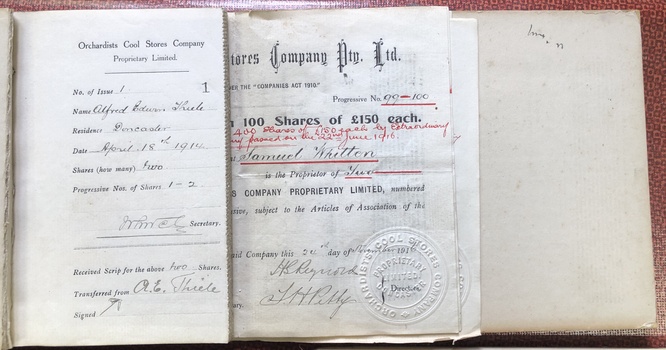 Orchardists Cool Stores Company
Proprietary Limited.
No. of Issue 1
1
Name Alfred Edwin Thiele
Residence Doncaster
Date April 18th 1914
Shares (how many) two
Progressive Nos. of Shares 1-2
Secretary.
Received Scrip for the above two Shares.
Transferred from A. E. Thiele
Signed
tores Company Pty. Ltd.
ER THE "COMPANIES ACT 1910."
Progressive No. 99-100
100 Shares of £150 each.
400 Shares of £150 each by Extraordinary
passed on the 22nd June 1916.
Samuel Whitten
is the Proprietor of Two
S COMPANY PROPRIETARY LIMITED, numbered
ssive, subject to the Articles of Association of the
aid Company this 24th day of November 1916
Directors
ORCHARDISTS COOL STORES COMPANY
PROPRIETARY
LIMITED
DONCASTER